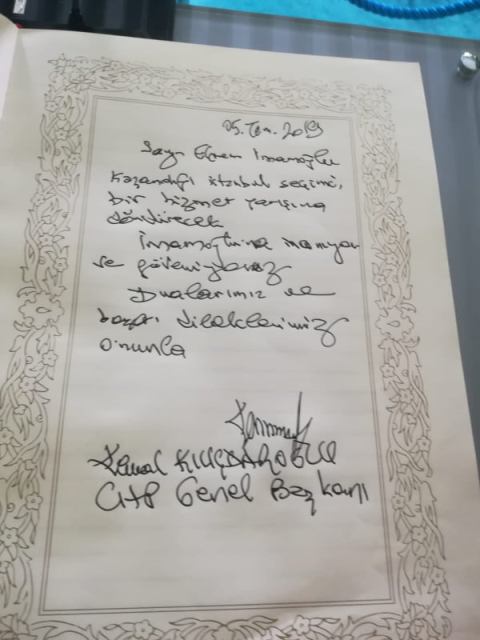 05.Tem.2019
Sayın Ekrem İmamoğlu
kazandığı İstanbul seçimi,
bir hizmet yarışına
döndürecek
İmamoğluna inanıyor
ve güveniyoruz
Dualarımız ve
başarı dileklerimiz
onunla
Kemal KILIÇDAROĞLU
CHP Genel Başkanı